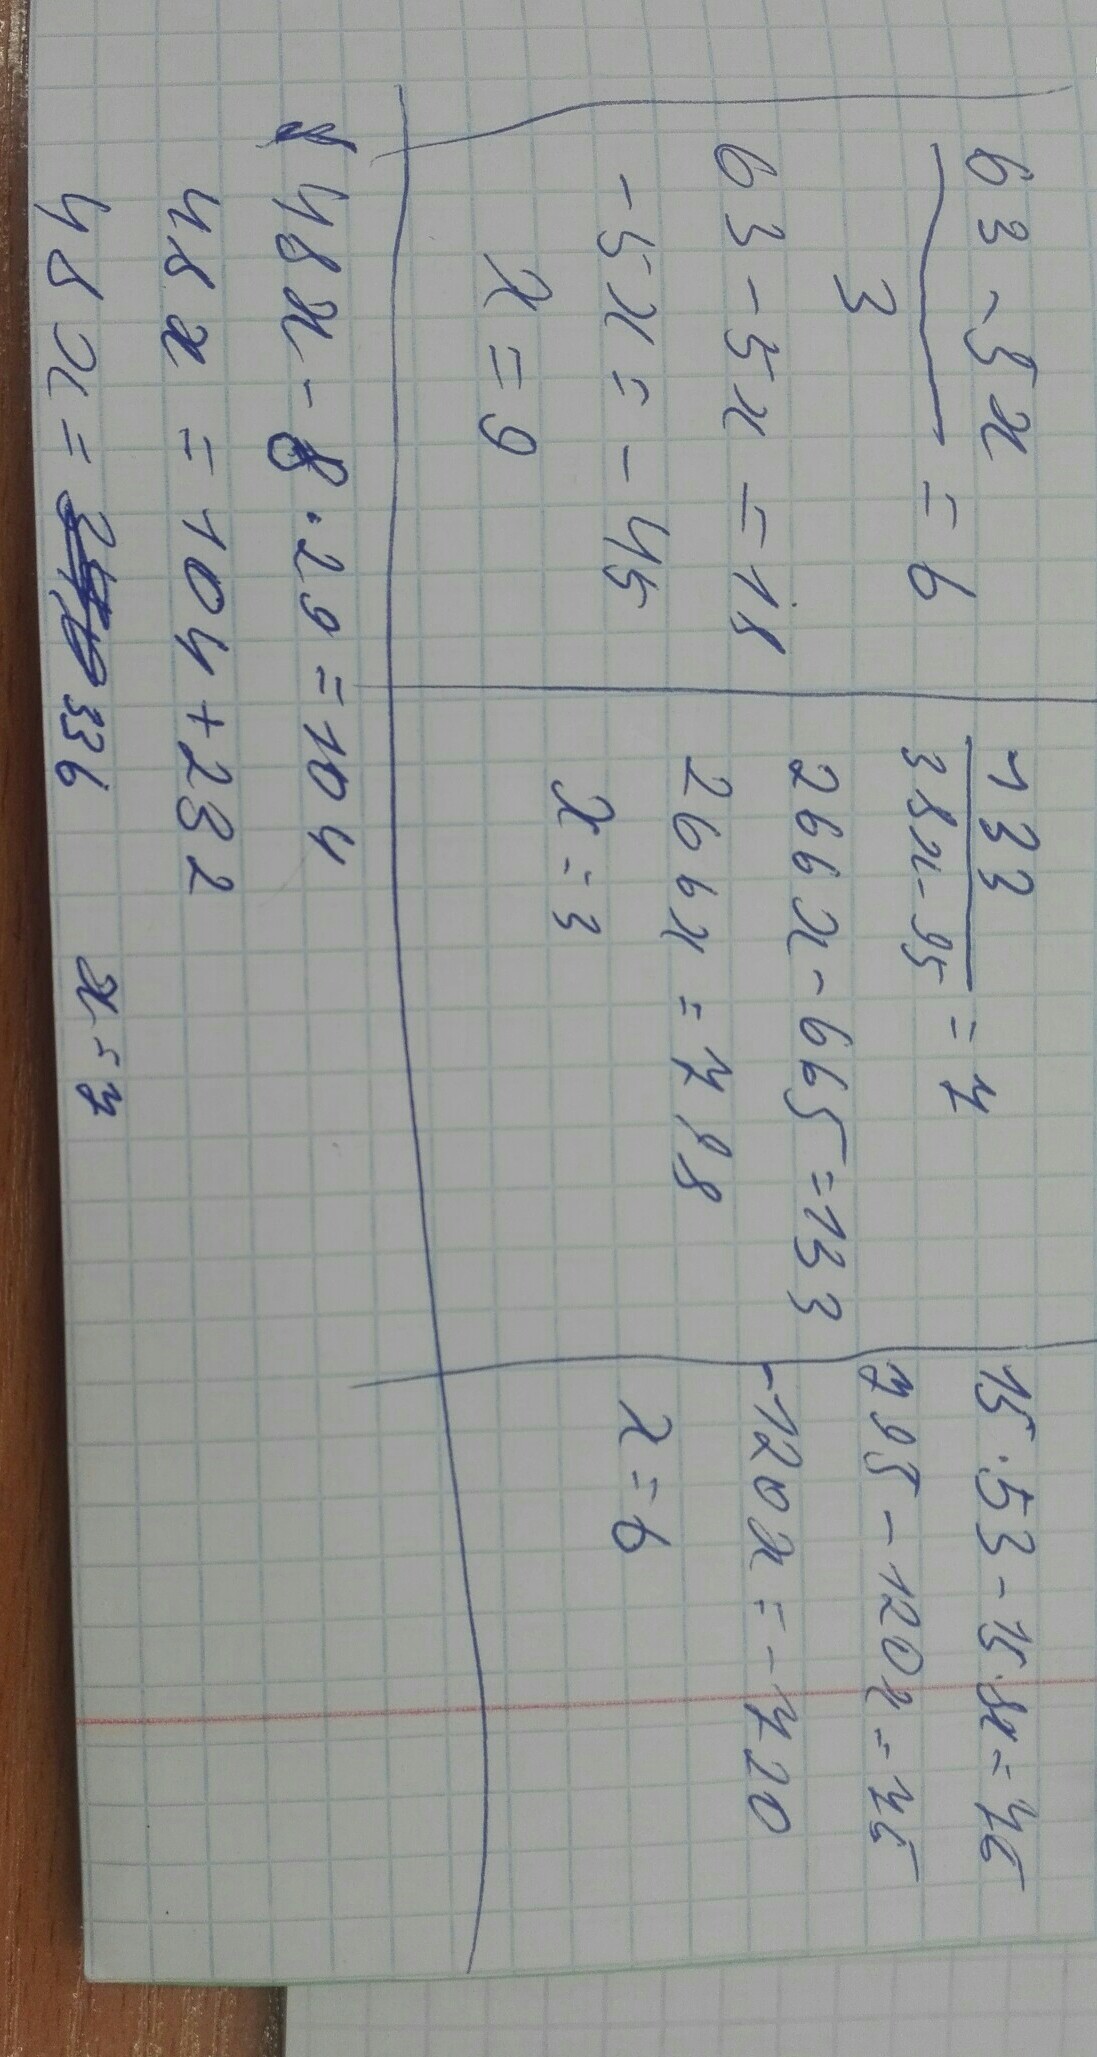 63-5x
3
=6
63-5x=18
-5x=-45
x=9
133
38x-95
=7
266x-665=133
266x=798
x=3
15·53-15·8x=75
795-120x=75
-120x=-720
x=6
48x-8·29=104
48x=104+232
48x=336
x=7